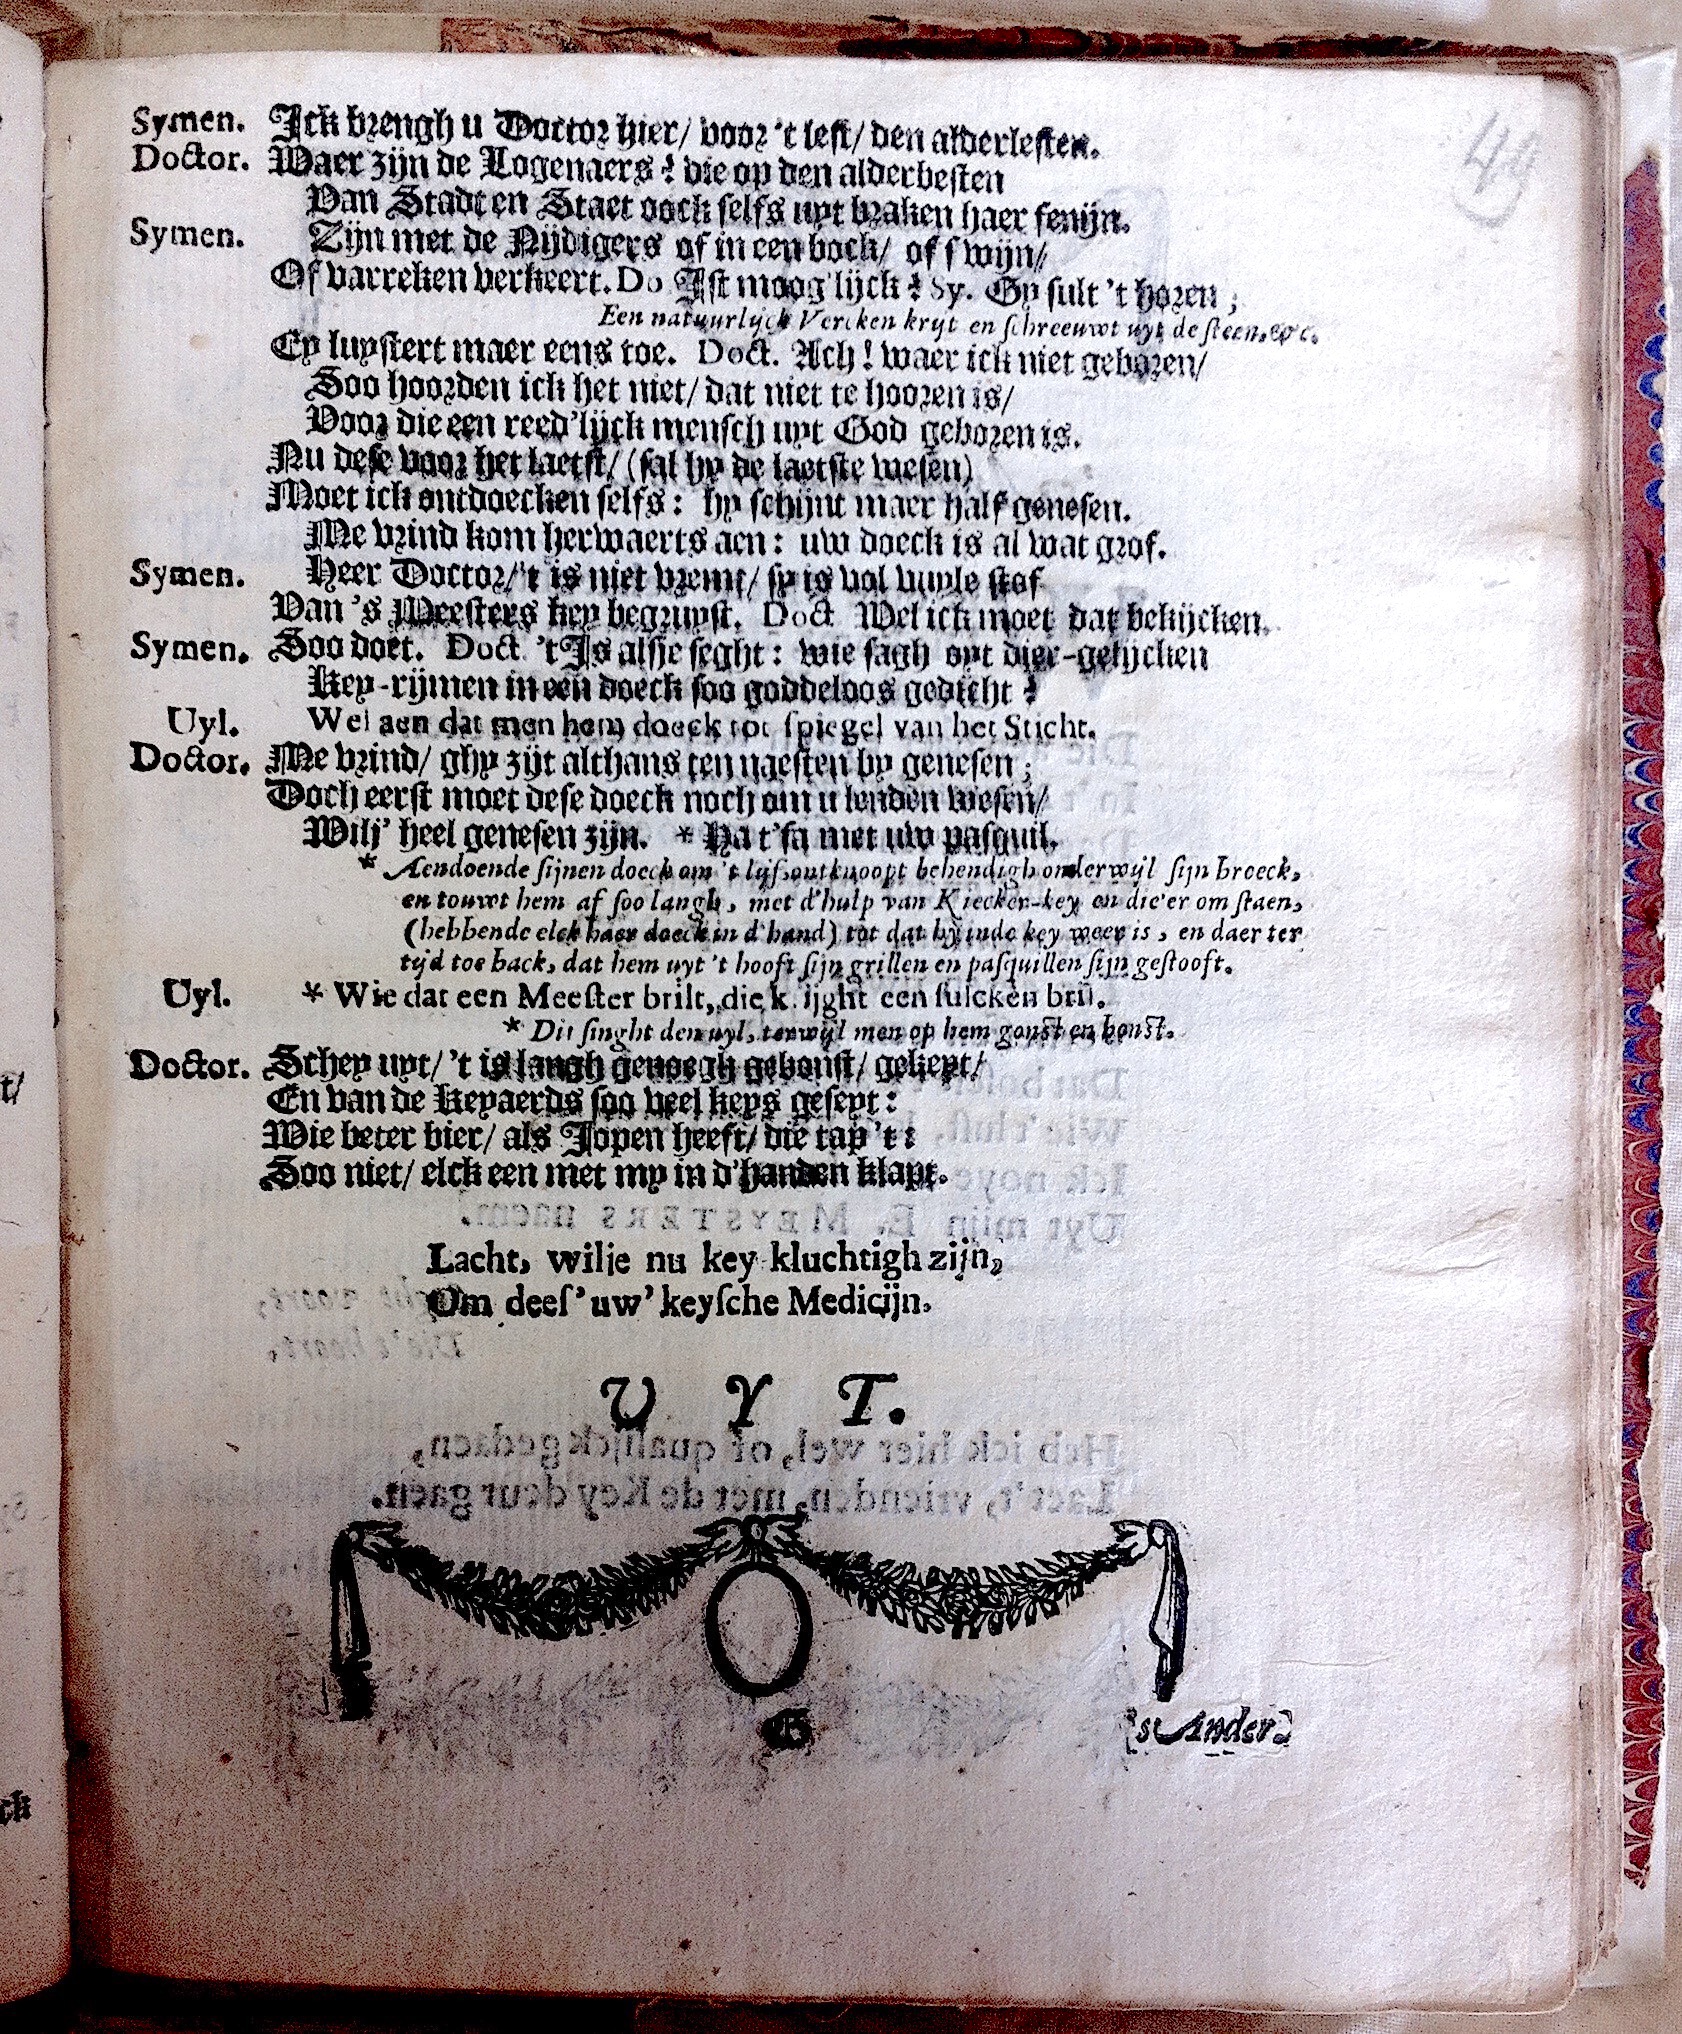 49
Symen. Ick brengh u Doctor hier/ voor 't lest/ den alderlesten.
Doctor. Waer zijn de Logenaers? die op den alderbesten
Van Stadt en Staet oock selfs uyt braken haer fenijn.
Symen. Zijn met de Nijdigers of in een bock/ of swijn/
Of varreken verkeert. Do. Ist moog'lijck? Sy. Gy sult 't horen;
Een natuurlijck Vercken kryt en schreeuwt uyt de steen. &c.
Ey luystert maer eens toe. Doct. Ach! waer ick niet geboren/
Soo hoorden ick het niet/ dat niet te hooren is/
Voor die een reed'lijck mensch uyt God geboren is.
Nu dese voor het laetst/ (sal hy de laetste wesen)
Moet ick ontdoecken selfs: hy schijnt maer half genesen.
Me vrind kom herwaerts aen: uw doeck is al wat grof.
Symen. Heer Doctor/ 't is niet vremt/ sy is vol vuyle stof
Van 's Meesters key begruyst. Doct. Wel ick moet dat bekijcken.
Symen. Soo doet. Doct. 't Is alsje seght: wie sagh oyt dier-gelijcken
Key-rijmen in een doeck soo goddeloos gedicht?
Uyl. Wel aen dat men hem doeck tot spiegel van het Sticht.
Doctor. Me vrind/ ghy zijt althans ten naesten by genesen;
Doch eerst moet dese doeck noch om u lenden wesen/
Wilj' heel genesen zijn. * Ha t'sa met uw pasquil.
* Aendoende sijnen doeck om 't lijf, ontknoopt behendigh onderwijl sijn broeck,
en touwt hem af soo langh, met d'hulp van Kiecker-key en die'er om staen,
(hebbende elck haer doeck in d'hand) tot dat hy inde key weer is, en daer ter
tijd toe back, dat hem uyt 't hooft sijn grillen en pasquillen sijn gestooft.
Uyl. * Wie dat een Meester brilt, die krijght een sulcken bril.
* Dit singht den uyl, terwijl men op hem gonst en bonst.
Doctor. Schey uyt/ 't is langh genoegh gebonst/ gekeyt/
En van de Keyaerds soo veel keys geseyt:
Wie beter bier/ als Jopen heeft/ die tap 't:
Soo niet/ elck een met my in d'handen klapt.
Lacht, wilje nu key-kluchtigh zijn,
Om dees' uw' keysche Medicijn.
UYT.
G
's Ander